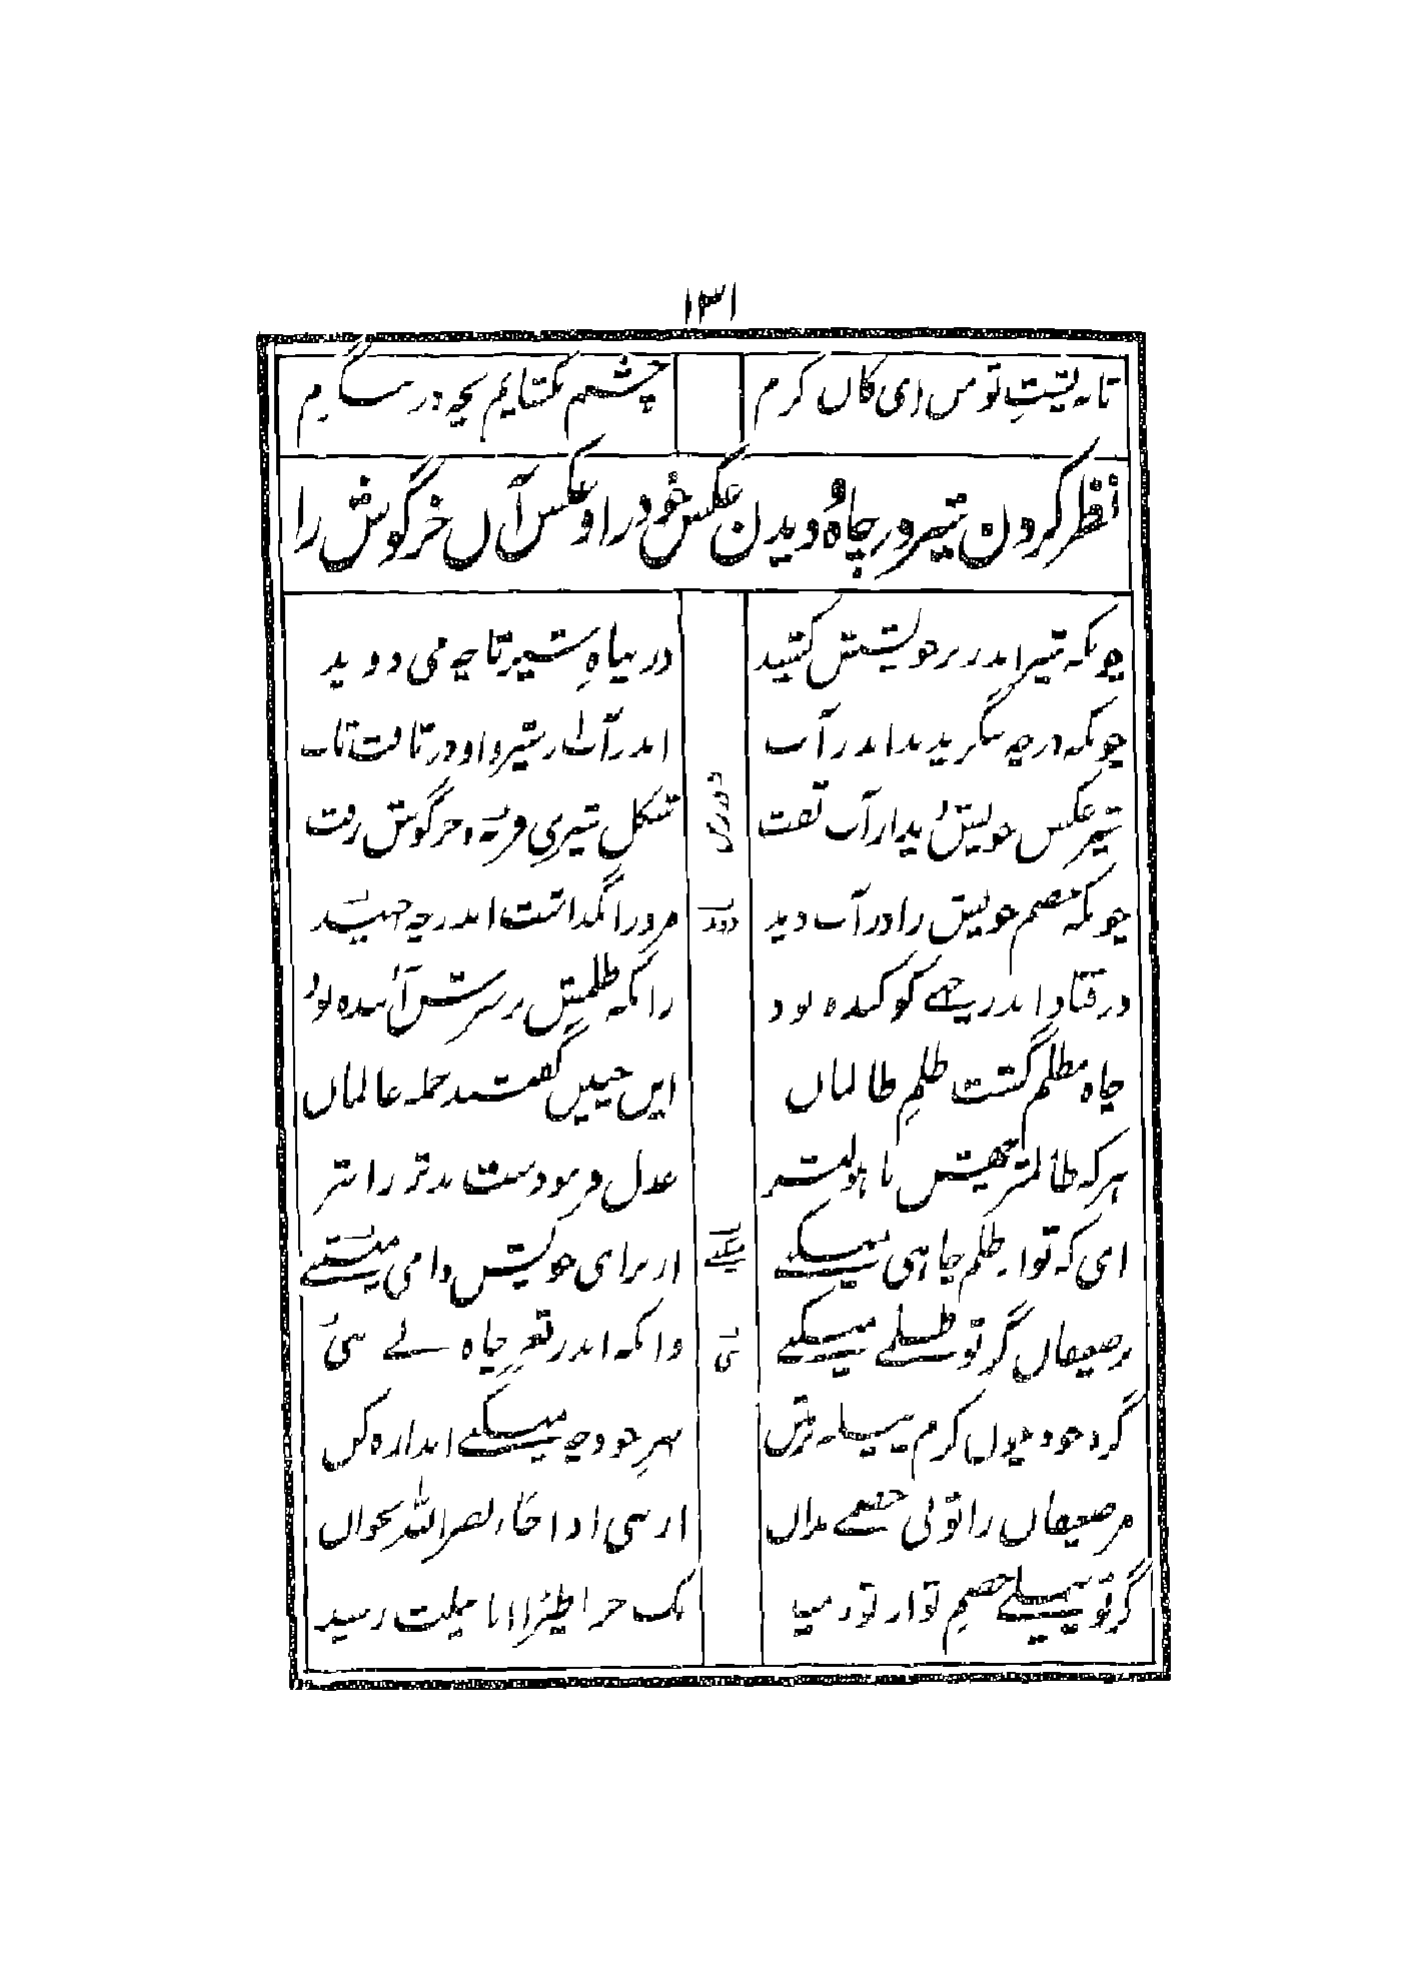 ۱۳۱
تا به پشتِ تو من ای کان کرم چشم بگشایم بچه در بنگرم
نظر کردن شیر در چاه و دیدن عکس خود را و عکس آں خرگوش را
چونکه شیر اندر بر خویشش کشید در پناهِ شیر تا چه می دوید
چونکه در چه بنگریدند اندر آب اندر آب از شیر و او در تافت تاب
شیر عکس خویش دید از آب تفت شکل شیری در برش خرگوش زفت
چونکه خصم خویش را در آب دید مر ورا بگذاشت اندر چه جهید
در فتاد اندر چهے کو کنده بود زانکه ظلمش بر سرش آینده بود
چاه مظلم گشت ظلمِ ظالماں ایں چنیں گفتند جمله عالماں
هر که ظالمتر چهش با هولتر عدل فرمودست بدتر را بتر
ای که تو از ظلم چاهی میکنے از برای خویش دامی میتنے
میکنے
بر ضعیفاں گر تو ظلمے میکنے دانکه اندر قعرِ چاه بے بنی
گرد خود چوں کرم پیله بر متن بهرِ خود چه میکنے اندازه کن
مر ضعیفاں را تو بی خصمے مداں از نبی اذا جاء نصر اللہ بخواں
گر تو پیلے خصمِ تو از تو رمید نک جزا طیرًا ابابیلت رسید